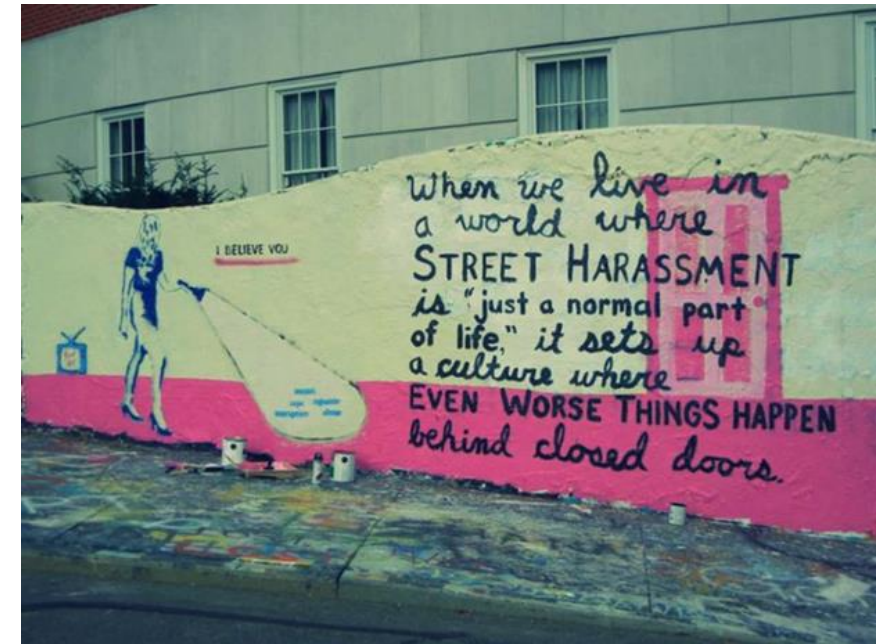 I BELIEVE YOU
When we live in
a world where
STREET HARASSMENT
is "just a normal part
of life," it sets up
a culture where
EVEN WORSE THINGS HAPPEN
behind closed doors.